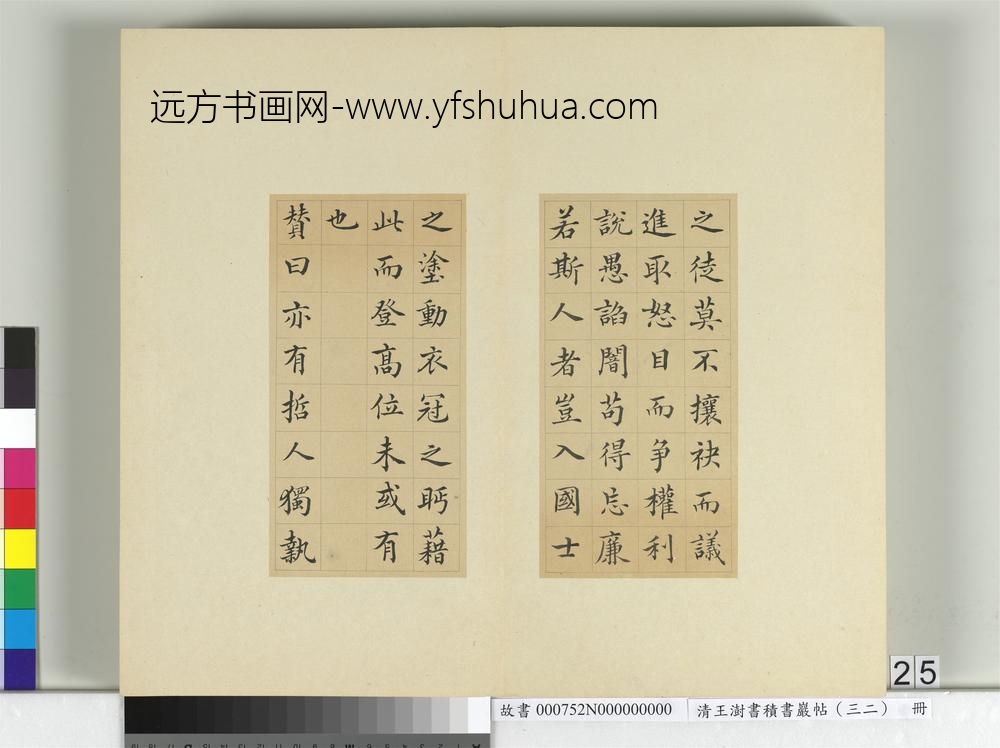 远方书画网-www.yfshuhua.com
之徒莫不攘袂而議
進取怒目而争權利
說愚諂闇苟得忘廉
若斯人者豈入國士
之塗動衣冠之眄藉
此而登髙位未或有
也
賛曰亦有哲人獨執
25
故書 000752N000000000
清王澍書積書巖帖（三二） 冊